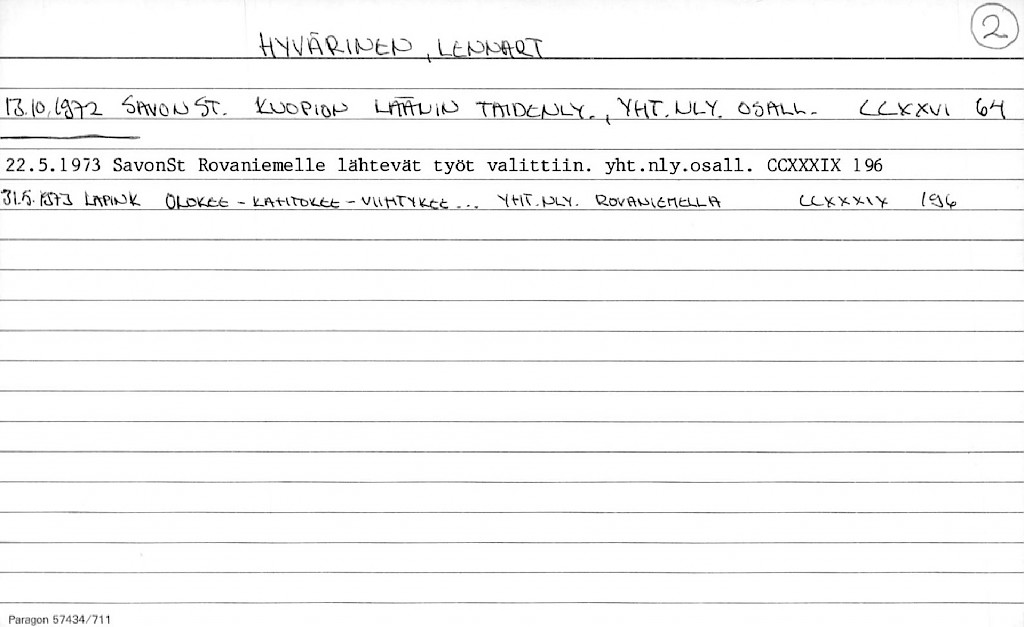 2
HYVÄRINEN, LENNART
13.10.1972 SAVON ST. KUOPION LÄÄNIN TAIDENLY., YHT.NLY. OSALL. CCXXVI 64
22.5.1973 SavonSt Rovaniemelle lähtevät työt valittiin. yht.nly.osall. CCXXXIX 196
31.5.1973 LAPINK OLOKEE - KAHTOKEE - VIIHTYKEE... YHT.NLY. ROVANIEMELLA CCXXXIX 196
Paragon 57434/711